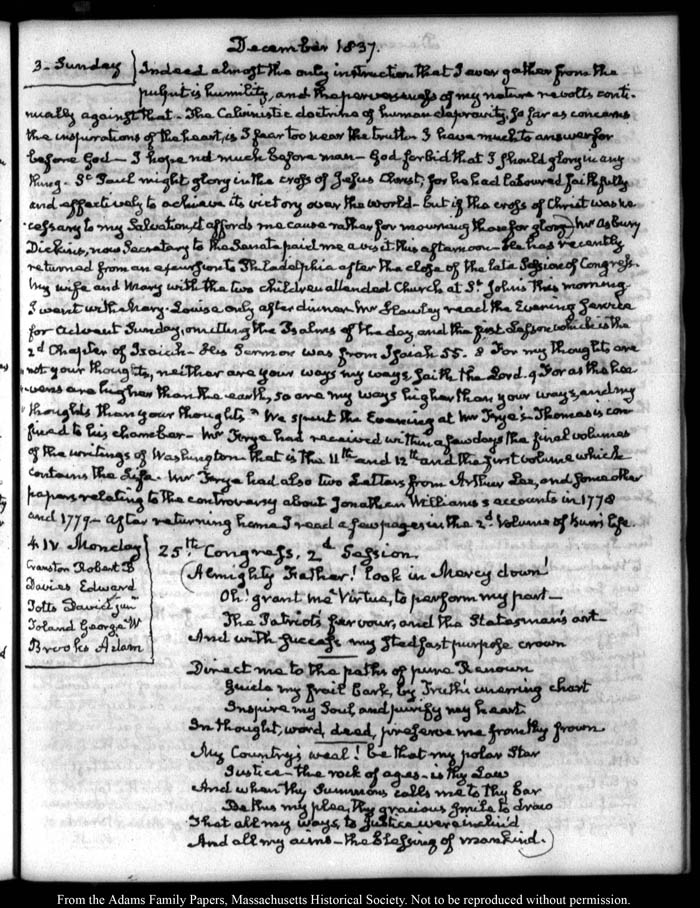 December 1837.
3. Sunday
Indeed almost the only instruction that I ever gather from the
pulpit is humility, and the perverseness of my nature revolts conti-
nually against that. The Calvinistic doctrine of human depravity, so far as concerns
the inspirations of the heart, is I fear too near the truth. I have much to answer for
before God — I hope not much before man — God forbid that I should glory in any
thing. St. Paul might glory in the cross of Jesus Christ, for he had laboured faithfully
and effectively to achieve its victory over the world — but if the cross of Christ was ne-
cessary to my Salvation, it affords me cause rather for mourning than for glory) Mr Asbury
Dickins, now Secretary to the Senate paid me a visit this afternoon — He has recently
returned from an excursion to Philadelphia after the close of the late Session of Congress.
My wife and Mary with the two children attended Church at St. John's this morning
I went with Mary-Louisa only after dinner Mr Hawley read the Evening Service
for Advent Sunday, omitting the Psalms of the day and the first Lesson which is the
2d Chapter of Isaiah — His Sermon was from Isaiah 55. 8 For my thoughts are
not your thoughts, neither are your ways my ways, saith the Lord. 9 For as the hea-
vens are higher than the earth, so are my ways higher than your ways, and my
thoughts than your thoughts" We spent the Evening at Mr Frye's — Thomas is con-
fined to his chamber — Mr Frye had received within a few days the final volumes
of the writings of Washington that is the 11th and 12th and the first volume which
contains the Life. Mr Frye had also two Letters from Arthur Lee, and some other
papers relating to the controversy about Jonathan Williams's accounts in 1778
and 1779 — After returning home I read a few pages in the 2d Volume of Burr's life.
4. IV. Monday
Cranston Robert B
Davies Edward
Potts David jun
Toland George W
Brooks Adam
25th Congress. 2d Session.
(Almighty Father! look in Mercy down
Oh! grant me Virtue, to perform my part —
The Patriot's fervour, and the Statesman's art —
And with success my stedfast purpose crown
Direct me to the paths of pure Renown
Guide my frail bark, by Truth's unerring chart
Inspire my Soul, and purify my heart
In thought, word, deed, preserve me from thy frown
My Country's weal! be that my polar Star
Justice — the rock of ages — is thy Law
And when thy Summons calls me to thy bar
Be this my plea, thy gracious smile to draw
That all my ways, to Justice were inclin'd
And all my aims — the blessing of mankind.)
From the Adams Family Papers, Massachusetts Historical Society. Not to be reproduced without permission.